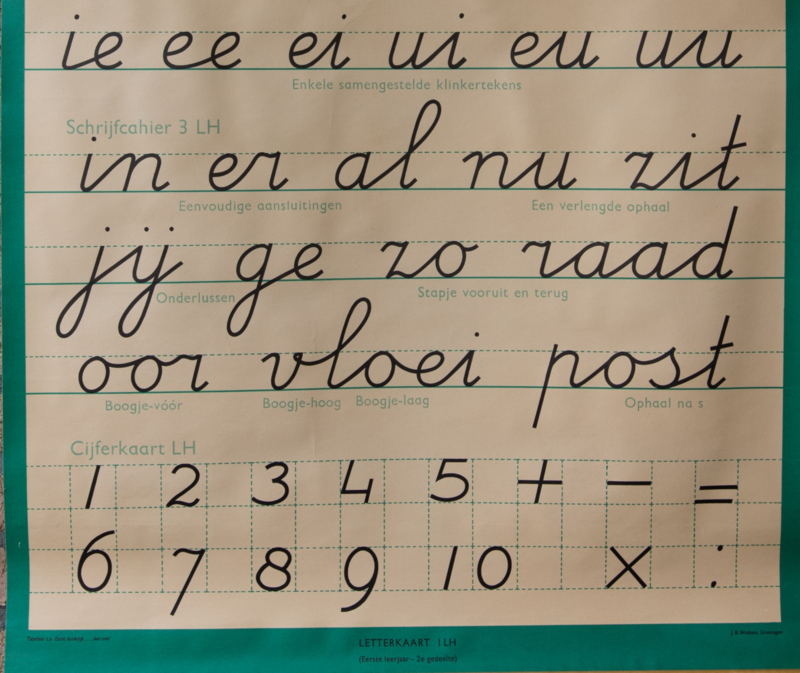 ie ee ei ui eu uu
Enkele samengestelde klinkertekens
Schrijfcahier 3 LH
in er al nu zit
Eenvoudige aansluitingen Een verlengde ophaal
jij ge zo raad
Onderlussen Stapje vooruit en terug
oor vloei post
Boogje-vóór Boogje-hoog Boogje-laag Ophaal na s
Cijferkaart LH
1 2 3 4 5 + − =
6 7 8 9 10 × :
LETTERKAART 1 LH
(Eerste leerjaar - 2e gedeelte)